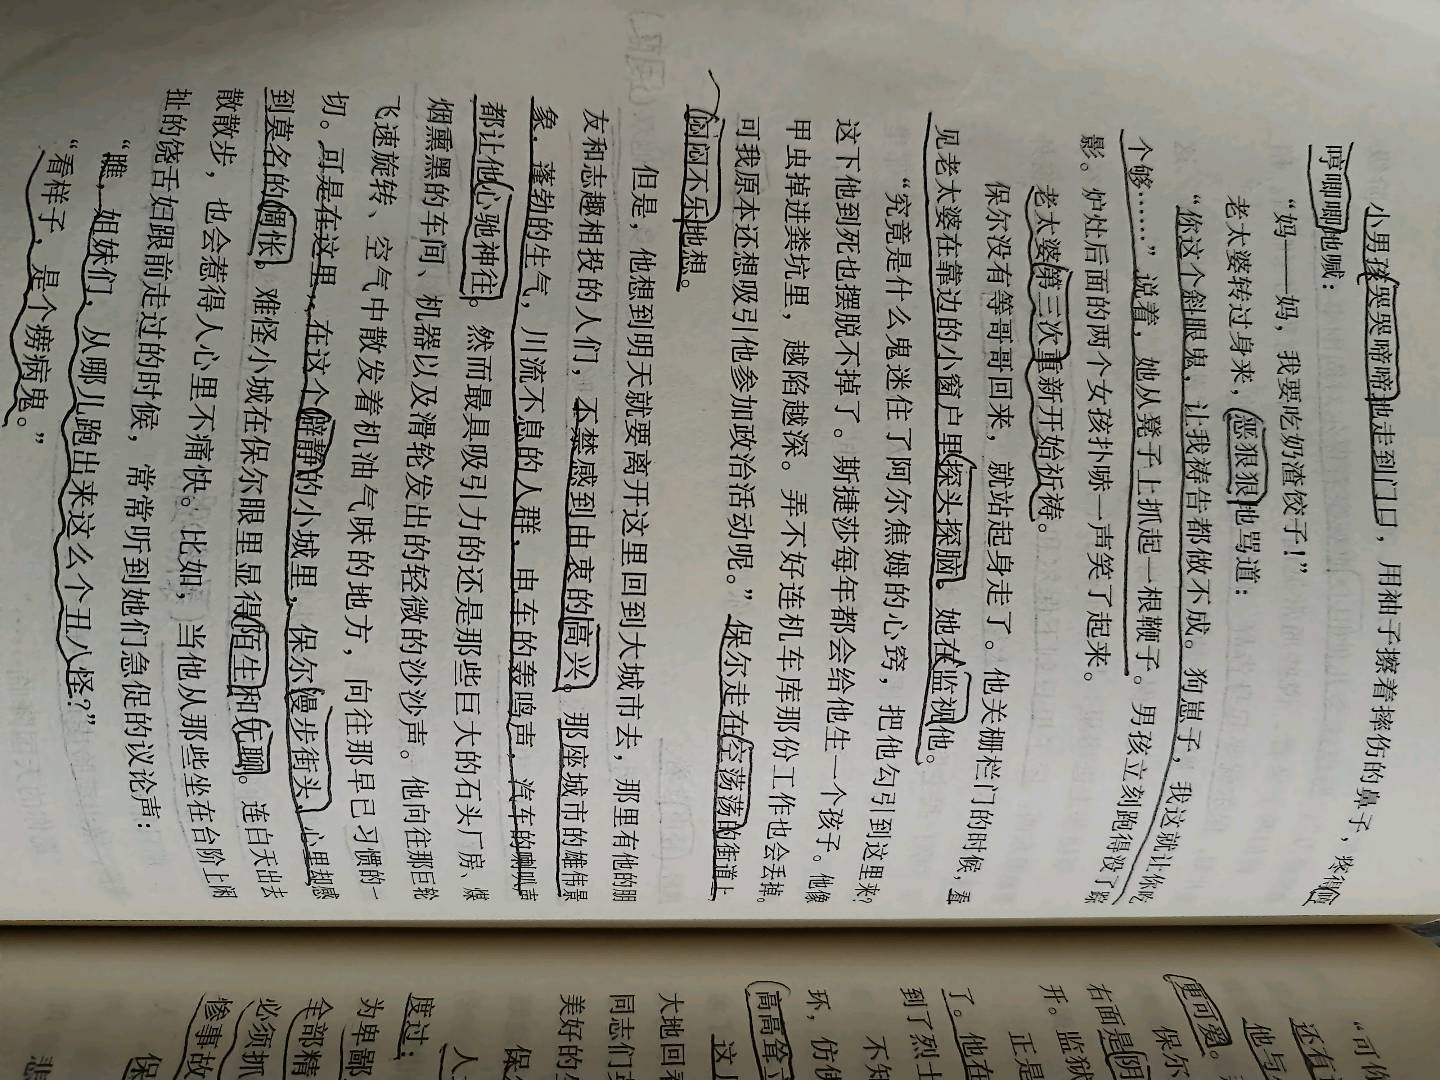 小男孩哭哭啼啼地走到门口，用袖子擦着摔伤的鼻子，
哼唧唧地喊：
“妈——妈，我要吃奶渣饺子！”
老太婆转过身来，恶狠狠地骂道：
“你这个斜眼鬼，让我祷告都做不成。狗崽子，我这就让你吃
个够……”说着，她从凳子上抓起一根鞭子。男孩立刻跑得没了踪
影。炉灶后面的两个女孩扑哧一声笑了起来。
老太婆第三次重新开始祈祷。
保尔没有等哥哥回来，就站起身走了。他关栅栏门的时候，看
见老太婆在靠边的小窗户里探头探脑。她在监视他。
“究竟是什么鬼迷住了阿尔焦姆的心窍，把他勾引到这里来？
这下他到死也摆脱不掉了。斯捷莎每年都会给他生一个孩子。他像
甲虫掉进粪坑里，越陷越深。弄不好连机车库那份工作也会丢掉。
可我原本还想吸引他参加政治活动呢。”保尔走在空荡荡的街道上，
闷闷不乐地想。
但是，他想到明天就要离开这里回到大城市去，那里有他的朋
友和志趣相投的人们，不禁感到由衷的高兴。那座城市的雄伟景
象，蓬勃的生气，川流不息的人群，电车的轰鸣声，汽车的喇叭声
都让他心驰神往。然而最具吸引力的还是那些巨大的石头厂房、煤
烟熏黑的车间、机器以及滑轮发出的轻微的沙沙声。他向往那巨轮
飞速旋转、空气中散发着机油气味的地方，向往那早已习惯的一
切。可是在这里，在这个僻静的小城里，保尔漫步街头，心里却感
到莫名的惆怅。难怪小城在保尔眼里显得陌生和无聊。连白天出去
散散步，也会惹得人心里不痛快。比如，当他从那些坐在台阶上闲
扯的饶舌妇跟前走过的时候，常常听到她们急促的议论声：
“瞧，姐妹们，从哪儿跑出来这么个丑八怪？”
“看样子，是个痨病鬼。”
“可
还有
他与
更可爱。
保尔
右面是阴
开。监狱
正是
了。他在
到了烈士
不知
环，仿佛
高高耸立
这
大地回春
同志们
美好的生
保
人
度过：
为卑鄙
全部精
必须抓
惨事故
保
悲